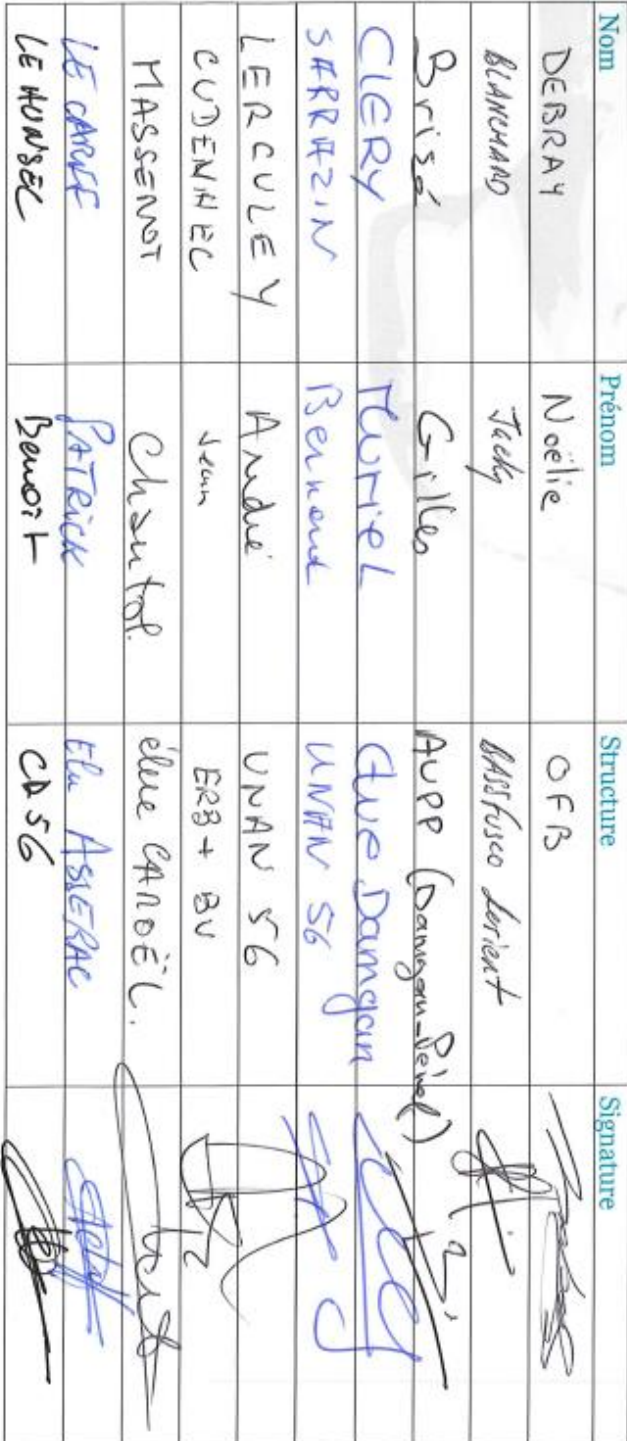 Nom Prénom Structure Signature
DEBRAY Noëlie OFB
BLANCHARD Jacky BASSFusco Lorient
Brisé Gilles AUPP (Damgan-Pénerf)
CLERY Muriel élue Damgan
SARRAZIN Bernard UNAN 56
LERCULEY André UNAN 56
CUDENNEC Jean ERB + BV
MASSENOT Chantal élue CAROËL.
PATRICK Elu ASSERAC
LE HUNSEC Benoit CD 56